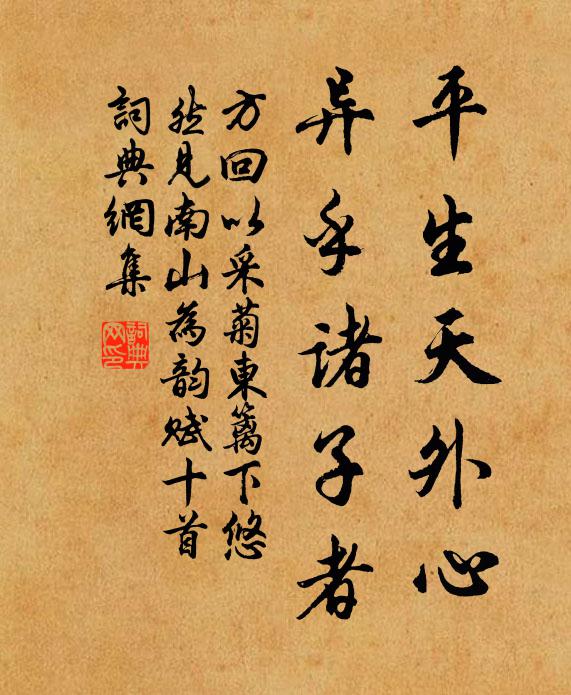 平生天外心
异乎诸子者
方回以采菊東篱下悠
然見南山為韵赋十首
詞典網集
詞典
网印